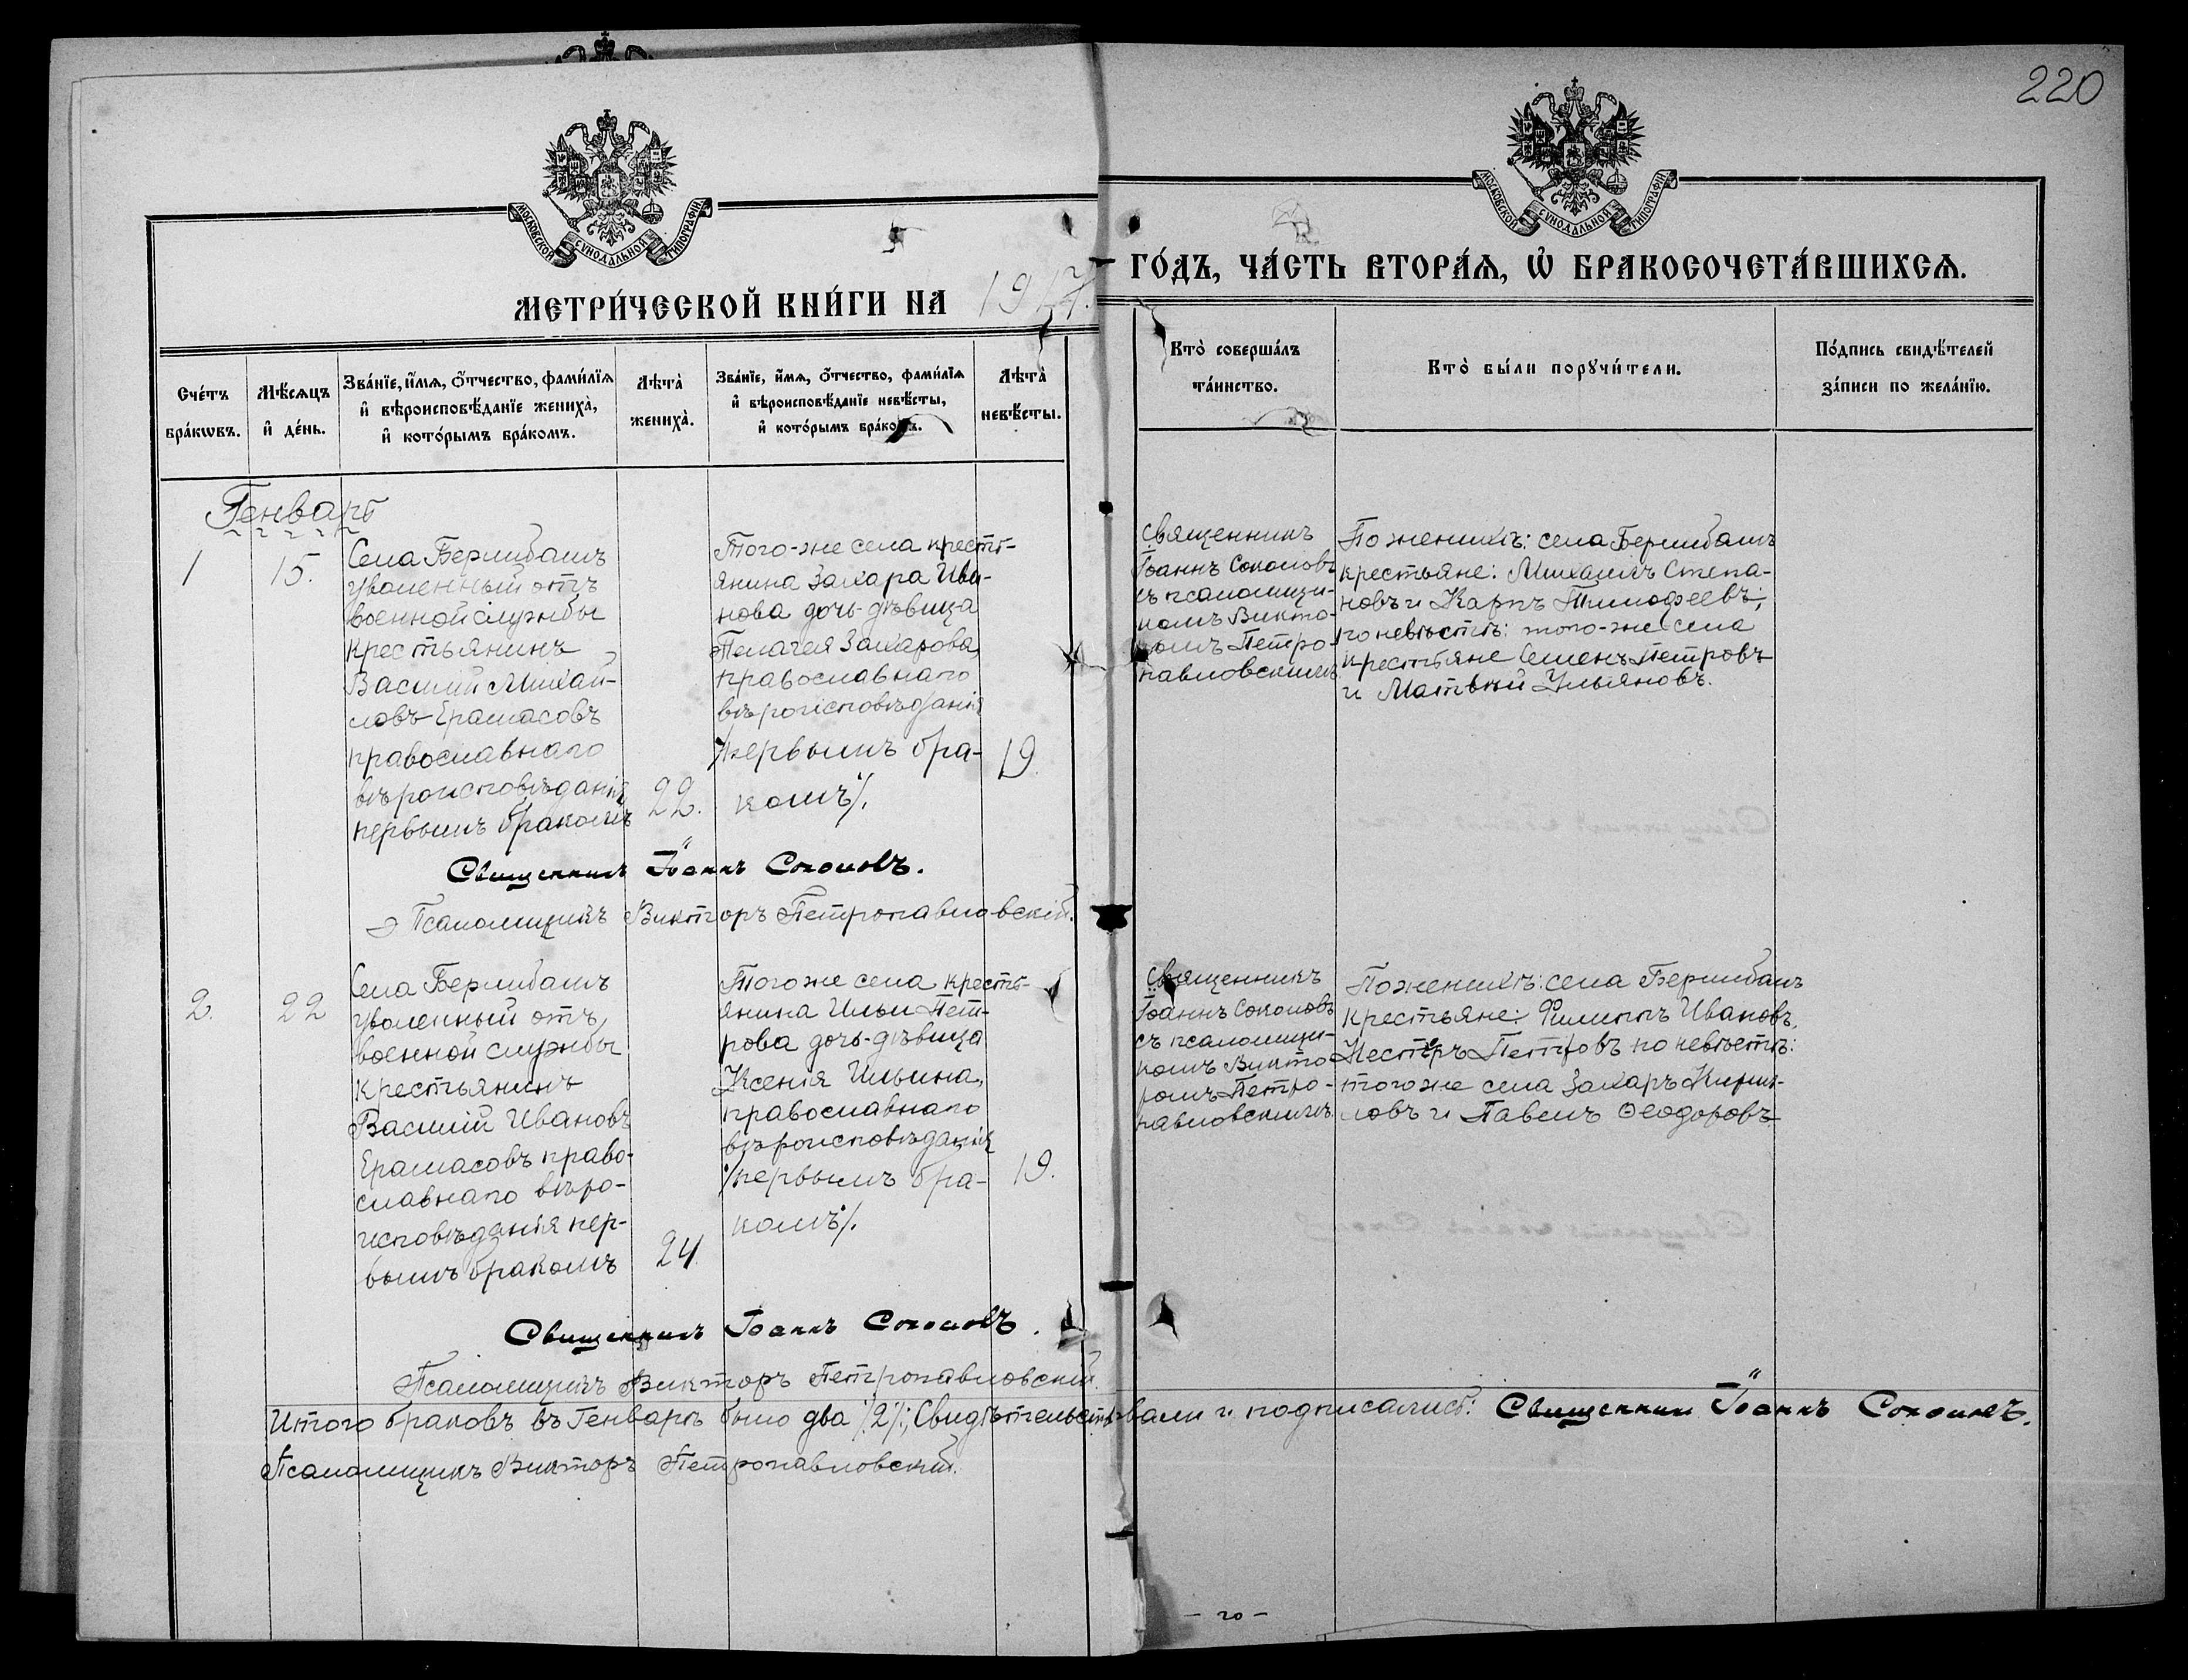 220
МОСКОВСКОЙ СѴНОДАЛЬНОЙ ТИПОГРАФІИ
МОСКОВСКОЙ СѴНОДАЛЬНОЙ ТИПОГРАФІИ
МЕТРИ́ЧЕСКОЙ КНИ́ГИ НА 1917. ГО́ДЪ, ЧА́СТЬ ВТОРА́Ѧ, Ѡ҆ БРАКОСОЧЕТА́ВШИХСѦ.
Сче́тъ
бра́кѡвъ.
Мѣ́сѧцъ
и҆ де́нь.
Зва́нїе, и҆́мѧ, ѻ҆́тчество, фами́лїѧ
и҆ вѣроисповѣ́данїе жениха̀,
и҆ кото́рымъ бра́комъ.
Лѣта̀
жениха̀.
Зва́нїе, и҆́мѧ, ѻ҆́тчество, фами́лїѧ
и҆ вѣроисповѣ́данїе невѣ́сты,
и҆ кото́рымъ бра́комъ.
Лѣта̀
невѣ́сты.
Кто̀ соверша́лъ
та́инство.
Кто̀ бы́ли порꙋчи́тели.
По́дпись свидѣ́телей
за́писи по жела́нїю.
Генварь
1
15.
Села Берлибашъ
уволенный отъ
военной службы
крестьянинъ
Василій Михай-
ловъ Ерамасовъ
православнаго
вѣроисповѣданія
первымъ бракомъ
22.
Того-же села кресть-
янина Захара Ива-
нова дочь-дѣвица
Пелагея Захарова,
православнаго
вѣроисповѣданія
первымъ бра-
комъ/.
19.
Священникъ
Іоаннъ Соколовъ
съ псаломщи-
комъ Викто-
ромъ Петро-
павловскимъ
По женихѣ: села Берлибашъ
крестьяне: Михаилъ Степа-
новъ и Карпъ Тимофеевъ;
по невѣстѣ: того-же села
крестьяне Семенъ Петровъ
и Матвѣй Ульяновъ.
Священникъ Іоаннъ Соколовъ.
Псаломщикъ Викторъ Петропавловскій.
2.
22
Села Берлибашъ
уволенный отъ
военной службы
крестьянинъ
Василій Ивановъ
Ерамасовъ право-
славнаго вѣро-
исповѣданія пер-
вымъ бракомъ
24
Того же села кресть-
янина Ильи Пет-
рова дочь-дѣвица
Ксенія Ильина,
православнаго
вѣроисповѣданія
первымъ бра-
комъ/.
19.
Священникъ
Іоаннъ Соколовъ
съ псаломщи-
комъ Викто-
ромъ Петро-
павловскимъ
По женихѣ: села Берлибашъ
крестьяне: Филиппъ Ивановъ,
Нестеръ Петровъ по невѣстѣ:
того же села Захаръ Кирил-
ловъ и Павелъ Ѳеодоровъ
Священникъ Іоаннъ Соколовъ.
Псаломщикъ Викторъ Петропавловскій.
Итого браковъ въ Генварѣ было два /.2/.; Свидѣтельствовали и подписались: Священникъ Іоаннъ Соколовъ.
Псаломщикъ Викторъ Петропавловскій.
- 20 -